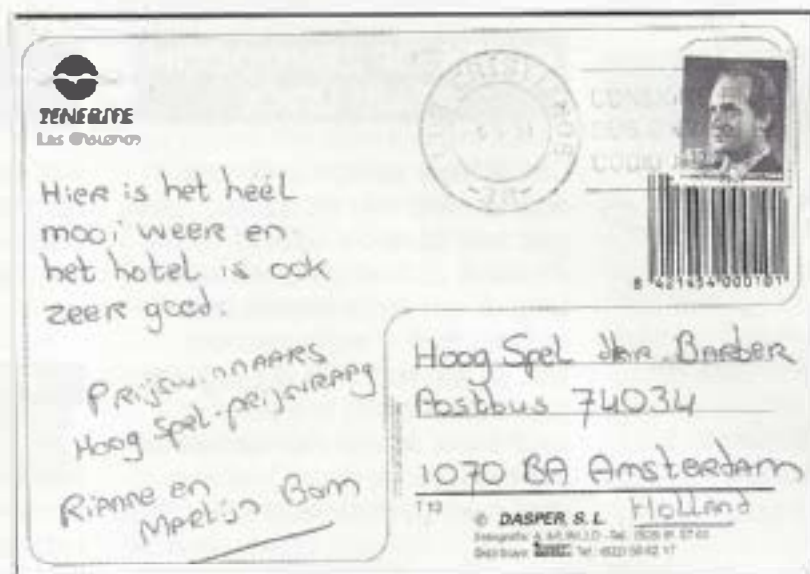 TENERIFE
Los Cristianos
Hier is het heél
mooi weer en
het hotel is ook
zeer goed.
Prijswinnaars
Hoog Spel-prijsvraag
Rianne en
Martijn Bom
8 421454 000101
Hoog Spel Har. Barber
Postbus 74034
1070 BA Amsterdam
Holland
T 13
© DASPER, S. L.